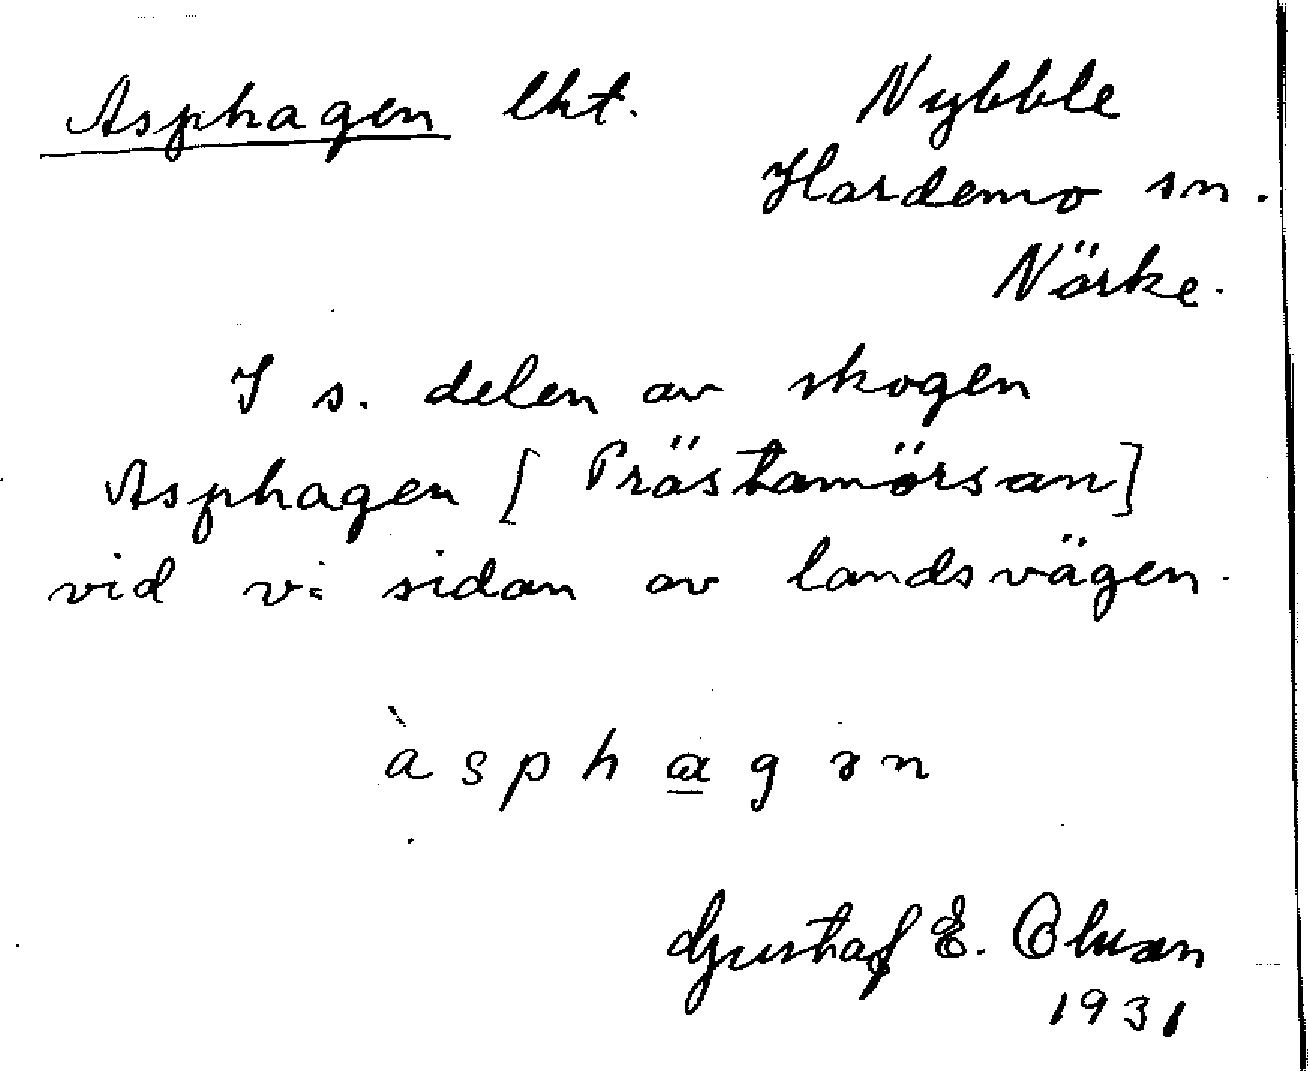 Asphagen lht. Nybble
Hardemo sn.
Närke.
I s. delen av skogen
Asphagen [Prästamörsan]
vid v. sidan av landsvägen.
àspha̲gən
Gustaf E. Olsson
1931